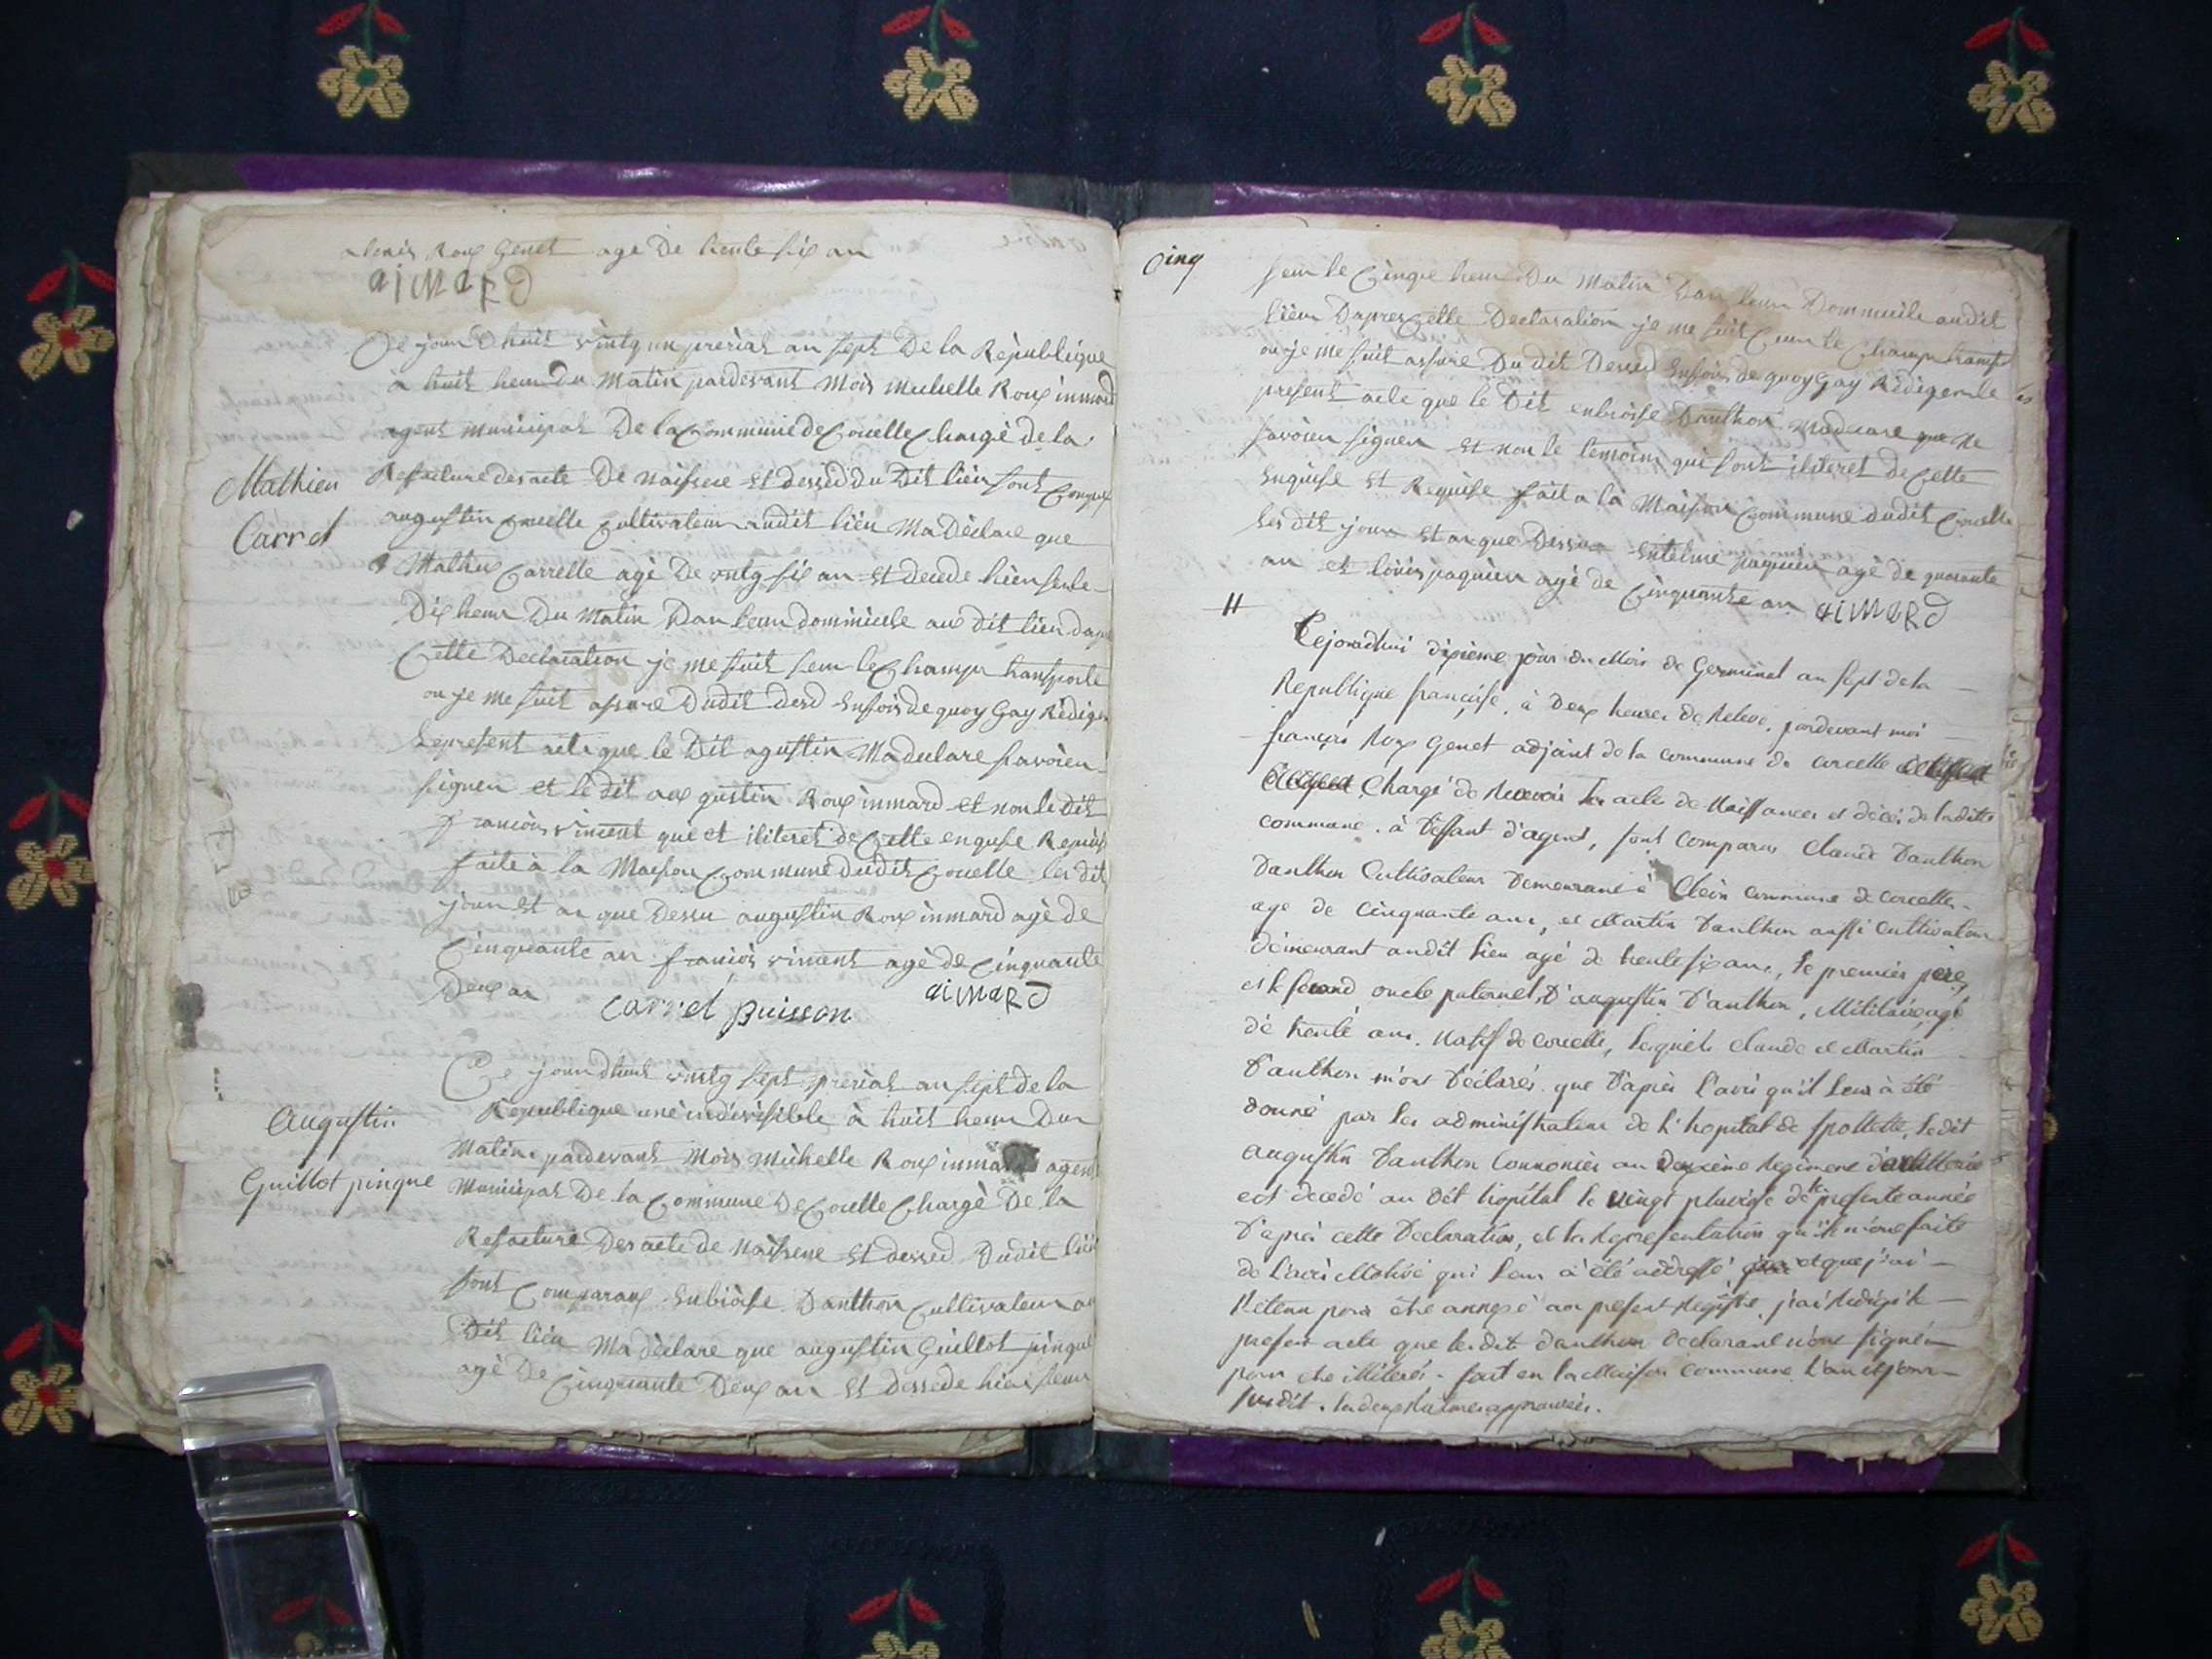 Roux Genet agé De trente six an
aiMaRD
Ce jour Dhuit vintg un prerial an sept De la République
à huit heur du Matin pardevant Mois Michelle Roux inmard
agent municipal De la Commune de Corcelle Chargé de la
Mathieu
Refacture des acte De naissence et desséd du Dit lieu sont
Carret
augustin Cultivateur audit lieu Ma Déclare que
Mathieu Carrette agé De vintg six an et decede hier seur le
Dix heur Du Matin Dan leur dommicile au dit lieu dapre
Cette Declaration je me suit seur le Champ transporte
ou je me suit assure Dudit desd Enfois de quoy Gay Rédiger
le present acte que le Dit agustin Ma declare savoier
signer et le dit augustin Roux inmard et non le dit
francois vincent que et iliteret de Cette enquse Requise
faite à la Maison Commune dudit Corcelle les dit
jour et an que Dessu augustin Roux inmard agé de
Cinquante an francois vincent agé de Cinquante
Deux an
Carret puisson aiMaRD
Ce jour dhuit vintg sept prerial an sept de la
Augustin
Republique une indivisible à huit heur Du
Matin pardevant Mois Michelle Roux inmard agent
Guillot pinque
Municipal De la Commune De Corcelle Chargé De la
Refacture Des acte de Naissene et dessed Dudit lieu
sont Comparaux Enbroise Danthon Cultivateur au
Dit lieu Ma déclare que augustin Guillot pinque
agé De Cinquante Deux an et dessede hier seur
Cinq
seur le Cinque heur Du Matin Dan leur Dommicile audit
lieu Dapres Cette Declaration je me suit seur le Champ transp
ou je me suit assure Du dit Desed Enfois de quoy Gay Rédiger le
present acte que le Dit enbroise Danthon Ma declare que Ne
savoier signer et non le temoins qui sont iliteret de Cette
Enquise et Requise fait a la Maison Commune dudit Corcelle
les dit jour et an que Dessu Entelme paquier agé de quarante
an et louis paquier agé de Cinquante an aiMaRD
11
Cejourdhui dixième jour du Mois de Germinal an sept de la
Republique française, à Deux heures de Relevé, pardevant moi
françois Roux Genet adjoint de la commune de corcelle
Chargé de Recevoir les actes de Naissances et décés de ladite
commune. à Deffant d'agent, sont comparus Claude Danthon
Danthon Cultivateur Demeurant à Clein commune de corcelle
age de Cinquante ans, et Martin Danthon aussi Cultivateur
démeurant audit lieu agé de trente six ans, le premier père,
et le second oncle paternel, D'augustin D'anthon, Militaire agé
dé trente ans. Natif de corcelle, lesquels Claude et Martin
D'anthon m'ont Déclarés que D'après l'avis qu'il leur à été
donné par les administrateur de l'hopital de spollette, ledit
augustin Danthon Connonier au Deuxième Regiment d'artillerie
est decedé au dit hopital le vingt pluviose de la presente année
D'après cette Declaration, et la Representation qu'ils m'ont faite
de l'avis Motivé qui leur à été addressé et que j'ai
Retenu pour être annexé au present Registre, j'ai Redigé le
present acte que lesdits danthon Declarant n'ont signé
pour etre illiterés. fait en la Maison commune l'an et jour
susdit. les deux Ratures approuvées.